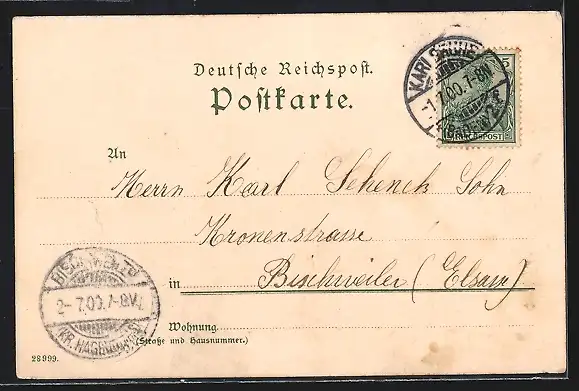 Deutsche Reichspost.
Postkarte.
KARLSRUHE
-1.7.00.7-8N.
(BADEN)
5
REICHSPOST
An
Herrn Karl Schenck Sohn
Kronenstrasse
in Bischweiler (Elsass)
BISCHWEILER
2-7.00.7-8V.
(KR. HAGENAU)
Wohnung
(Straße und Hausnummer.)
28999.